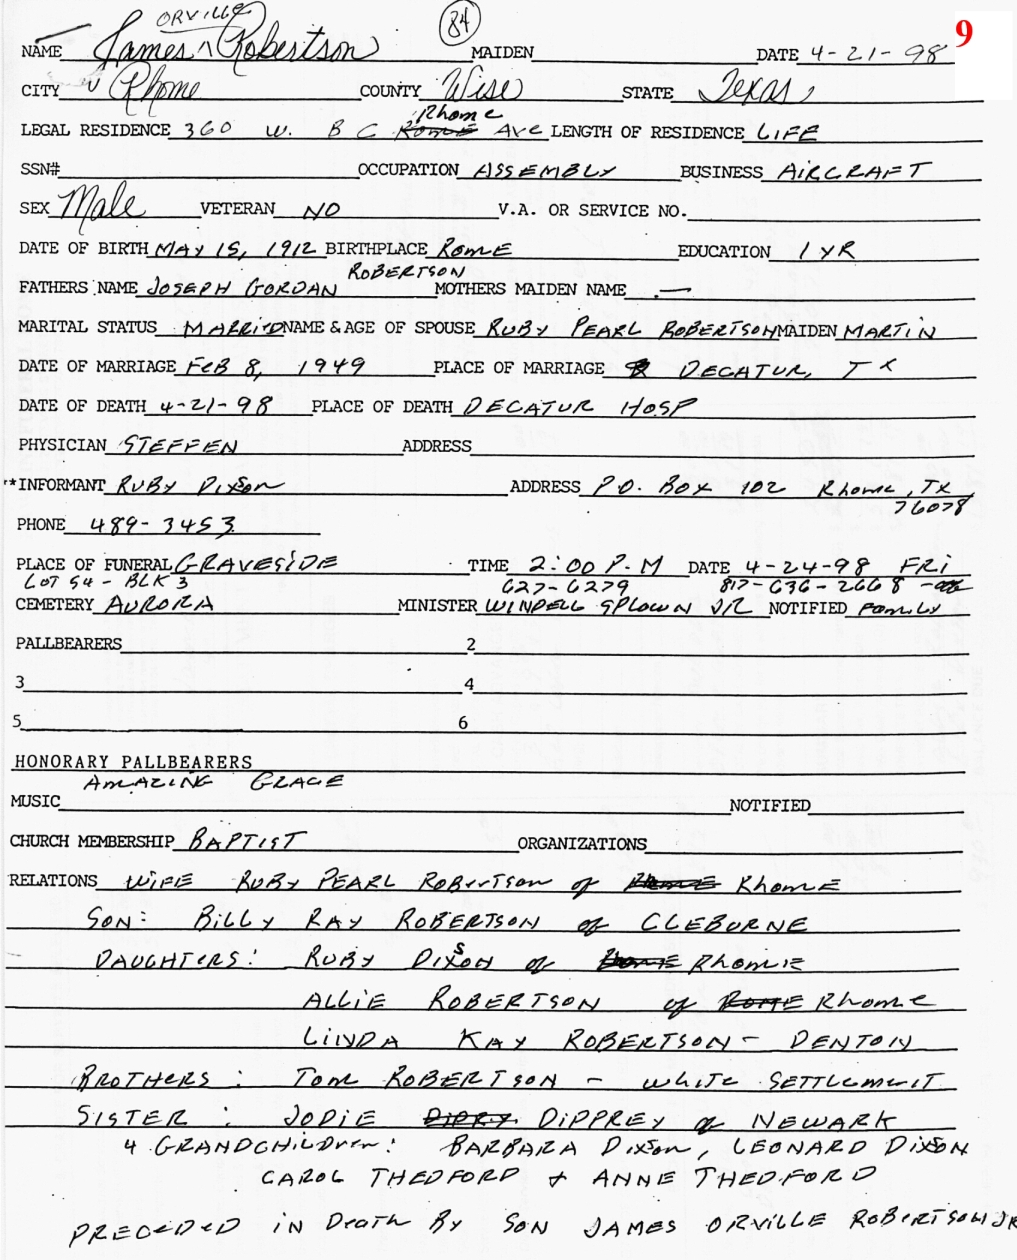 ORVILLE 84 9
NAME James ^ Robertson MAIDEN DATE 4-21-98
CITY Rhome COUNTY Wise STATE Texas
Rhome
LEGAL RESIDENCE 360 W. B C Rome Ave LENGTH OF RESIDENCE LIFE
SSN# OCCUPATION ASSEMBLY BUSINESS AIRCRAFT
SEX Male VETERAN NO V.A. OR SERVICE NO.
DATE OF BIRTH MAY 15, 1912 BIRTHPLACE Rome EDUCATION 1 YR
ROBERTSON
FATHERS NAME JOSEPH GORDAN MOTHERS MAIDEN NAME —
MARITAL STATUS MARRIED NAME & AGE OF SPOUSE RUBY PEARL ROBERTSON MAIDEN MARTIN
DATE OF MARRIAGE FEB 8, 1949 PLACE OF MARRIAGE DECATUR, TX
DATE OF DEATH 4-21-98 PLACE OF DEATH DECATUR HOSP
PHYSICIAN STEFFEN ADDRESS
*INFORMANT RUBY DIXSON ADDRESS P.O. BOX 102 Rhome, TX
76078
PHONE 489-3453
PLACE OF FUNERAL GRAVESIDE TIME 2:00 P.M DATE 4-24-98 FRI
LOT 54 - BLK 3 627-6279 817-636-2668
CEMETERY AURORA MINISTER WINDELL JR NOTIFIED FAMILY
PALLBEARERS 2
3 4
5 6
HONORARY PALLBEARERS
AMAZING GRACE
MUSIC NOTIFIED
CHURCH MEMBERSHIP BAPTIST ORGANIZATIONS
RELATIONS WIFE RUBY PEARL ROBERTSON of Rhome
SON: BILLY RAY ROBERTSON of CLEBURNE
DAUGHTERS: RUBY DIXSON of Rhome
ALLIE ROBERTSON of Rome Rhome
LINDA KAY ROBERTSON - DENTON
BROTHERS: TOM ROBERTSON - WHITE SETTLEMENT
SISTER: JODIE DIPPREY of NEWARK
4 GRANDCHILDREN: BARBARA DIXSON, LEONARD DIXSON
CAROL THEDFORD + ANNE THEDFORD
PRECEDED IN DEATH BY SON JAMES ORVILLE ROBERTSON JR